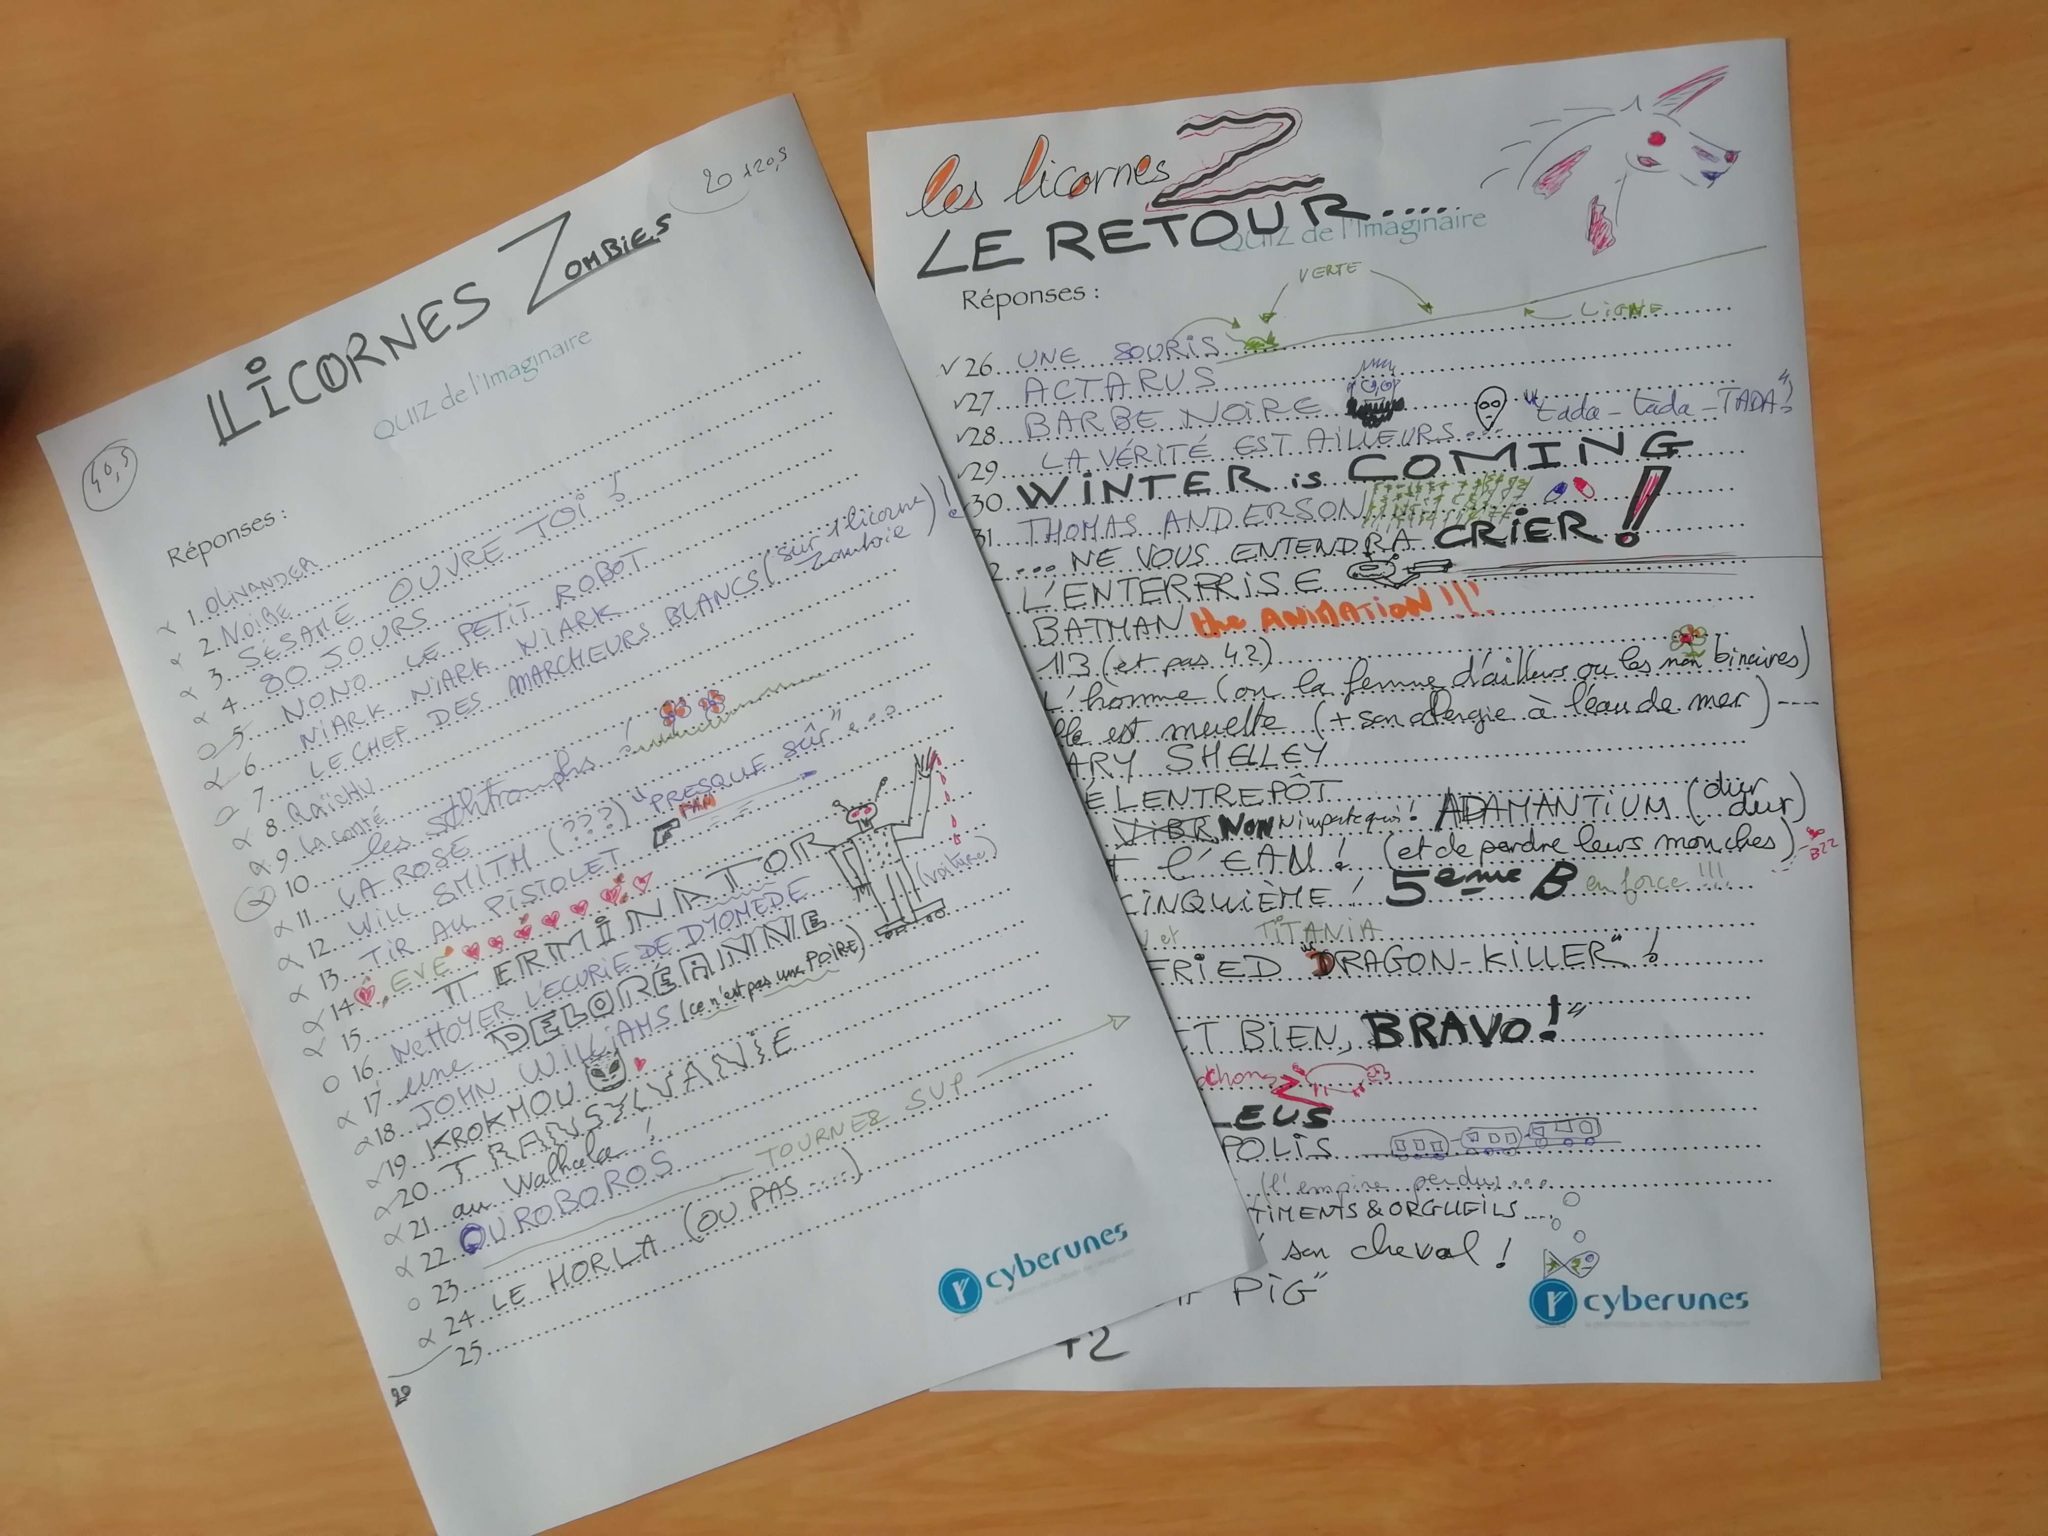 20 +20,5
LICORNES ZOMBIES
QUIZ de l'Imaginaire
40,5
Réponses :
1 OLLIVANDER
2 NOIRE
3 SÉSAME OUVRE TOI !
4 80 JOURS
5 NONO LE PETIT ROBOT
6 NIARK NIARK NIARK
7 LE CHEF DES MARCHEURS BLANCS (sur 1 licorne zombie) !
8 RAÏCHU
9 LA COMTÉ
10 les
11 LA ROSE
12 WILL SMITH (???) "PRESQUE SÛR"...
13 TIR AU PISTOLET PAN
14 EVE
15 TERMINATOR
16 NETTOYER L'ECURIE DE DYOMEDE
17 une DELORÉANNE (voiture)
18 JOHN WILLIAMS (ce n'est pas une POIRE)
19 KROKMOU
20 TRANSYLVANIE
21 au Walhala !
22 OUROBOROS
23 TOURNEZ SVP
24 LE HORLA (OU PAS ....)
25
20
cyberunes
les licornes Z
LE RETOUR....
QUIZ de l'Imaginaire
Réponses :
VERTE
LIGNE
26 UNE SOURIS
27 ACTARUS
28 BARBE NOIRE
29 LA VÉRITÉ EST AILLEURS... "tada-tada-TADA"!
30 WINTER is COMING
31 THOMAS ANDERSON
2 ... NE VOUS ENTENDRA CRIER !
L'ENTERPRISE
BATMAN the ANIMATION !!!
113 (et pas 42)
L'homme (ou la femme d'ailleurs ou les non binaires)
elle est muette (+ son allergie à l'eau de mer)----
ARY SHELLEY
E L'ENTREPÔT
VIBR NON N'importe quoi ! ADAMANTIUM (dur dur)
l'EAU ! (et de perdre leurs mouches) BZZ
CINQUIÈME ! 5ème B en force !!!
et TITANIA
FRIED "DRAGON-KILLER" !
T BIEN, BRAVO !"
LEUS
POLIS
(l'empire perdu...
TIMENTS & ORGUEILS....
son cheval !
PIG"
+2
cyberunes